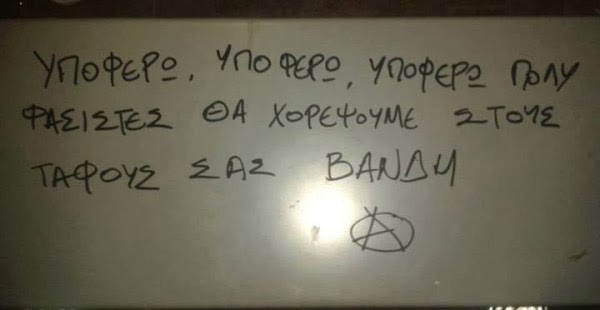 ΥΠΟΦΕΡΩ, ΥΠΟΦΕΡΩ, ΥΠΟΦΕΡΩ ΠΟΛΥ
ΦΑΣΙΣΤΕΣ ΘΑ ΧΟΡΕΨΟΥΜΕ ΣΤΟΥΣ
ΤΑΦΟΥΣ ΣΑΣ ΒΑΝΔΗ